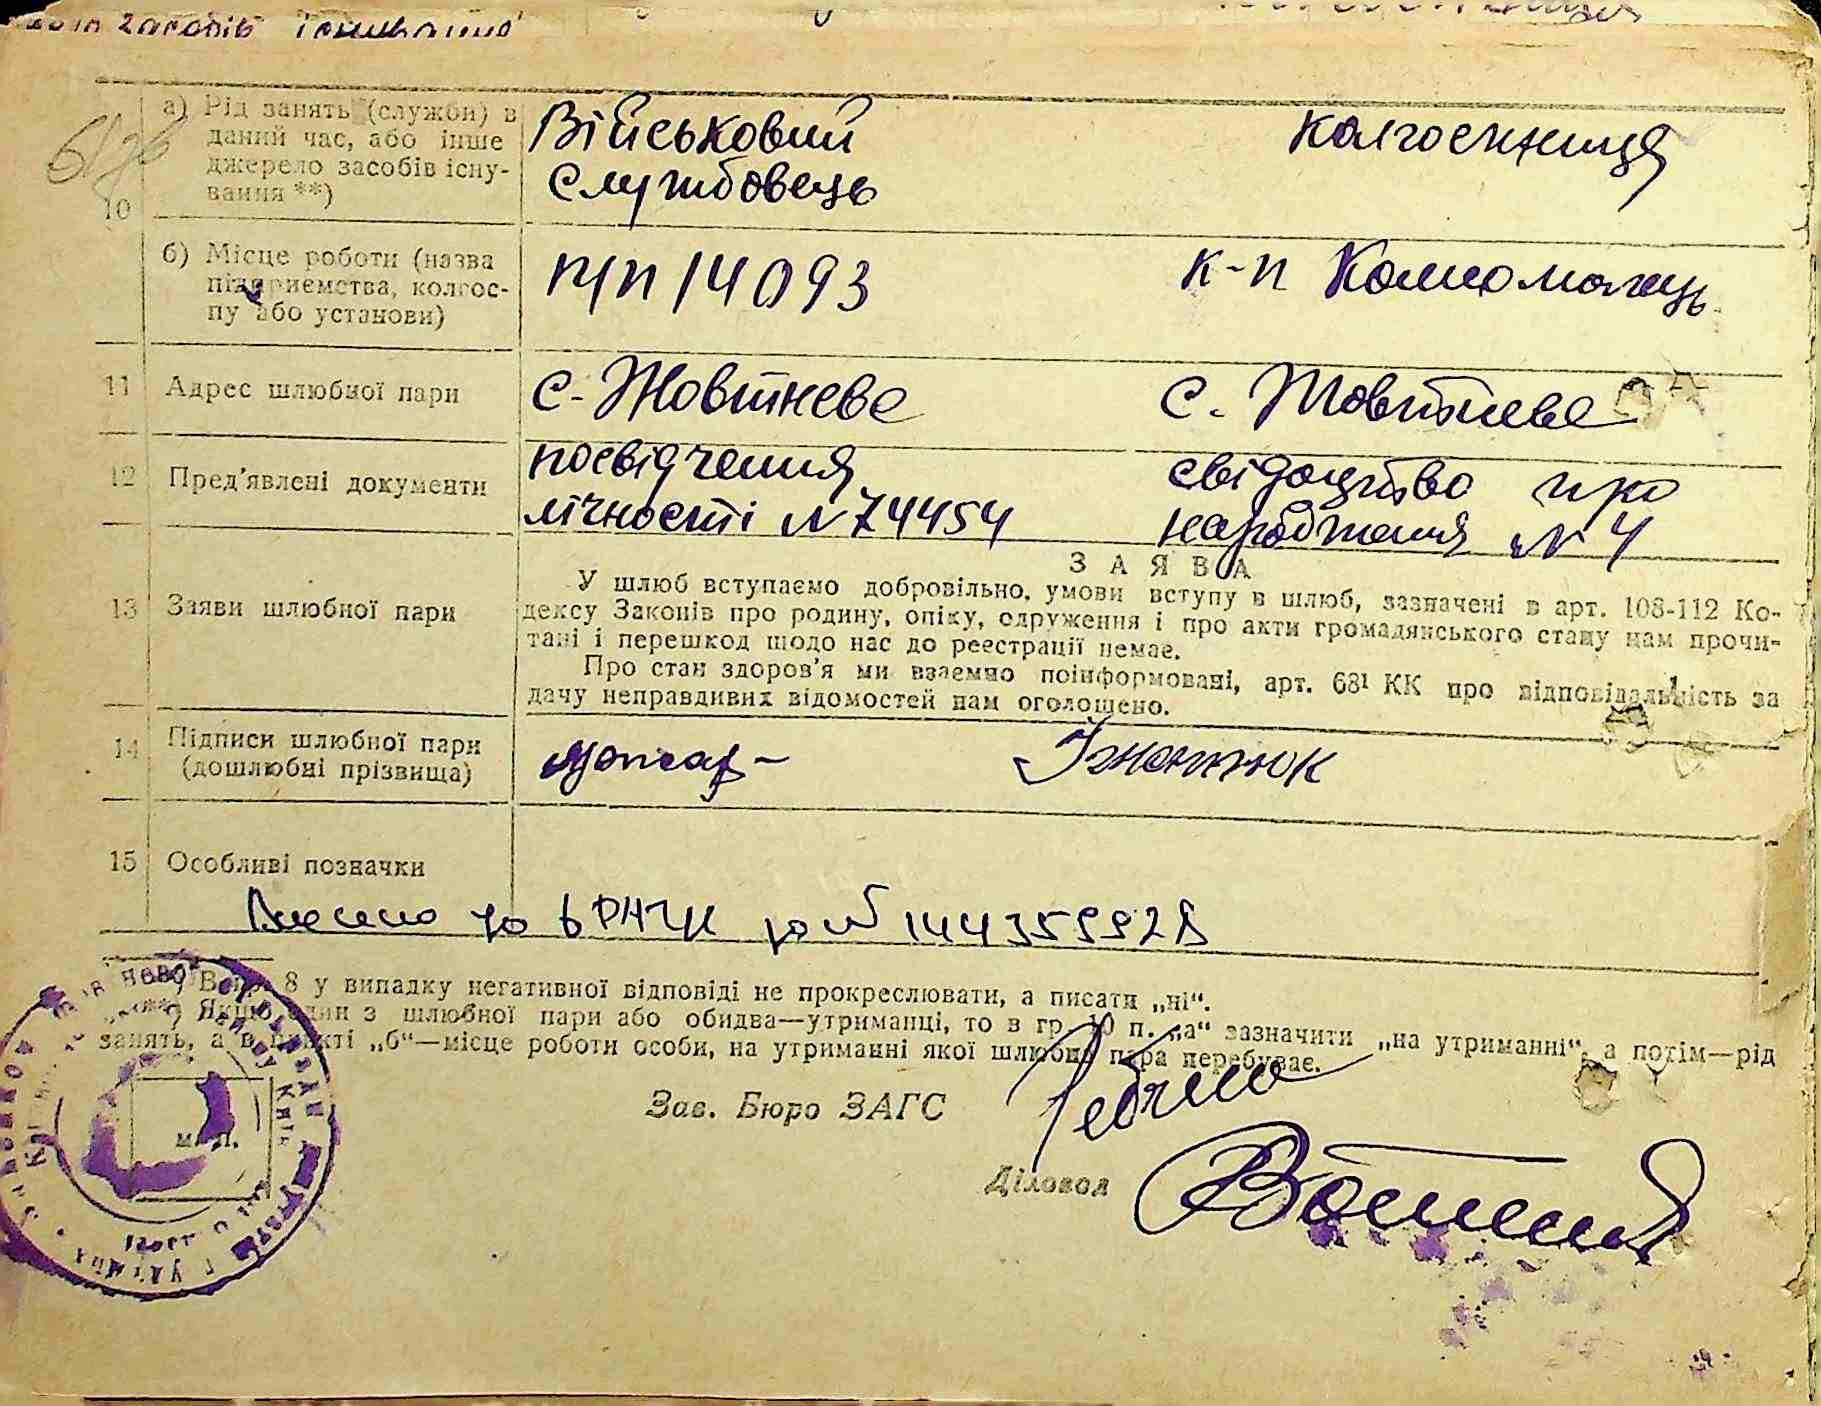 засобів існування
а) Рід занять (служби) в
даний час, або інше
джерело засобів існу-
вання **)
10
Військовий
службовець
колгоспниця
б) Місце роботи (назва
підприємства, колгос-
пу або установи)
п/п 14093
к-п Комсомолець
11 Адрес шлюбної пари
с. Жовтневе
с. Жовтневе
12 Пред'явлені документи
посвідчення
лічності N 74454
свідоцтво про
народження N 4
13 Заяви шлюбної пари
ЗАЯВА
У шлюб вступаємо добровільно, умови вступу в шлюб, зазначені в арт. 108-112 Ко-
дексу Законів про родину, опіку, одруження і про акти громадянського стану нам прочи-
тані і перешкод щодо нас до реєстрації немає.
Про стан здоров'я ми взаємно поінформовані, арт. 68¹ КК про відповідальність за
дачу неправдивих відомостей нам оголошено.
14 Підписи шлюбної пари
(дошлюбні прізвища)
Ігнатюк
15 Особливі позначки
Внесено до ДРАЦС за №
*) Возн. 8 у випадку негативної відповіді не прокреслювати, а писати „ні“.
**) Якщо один з шлюбної пари або обидва—утриманці, то в гр. 10 п. „а“ зазначити „на утриманні“, а потім—рід
занять, а в пункті „б“—місце роботи особи, на утриманні якої шлюбна пара перебуває.
Зав. Бюро ЗАГС
Діловод
М. П.